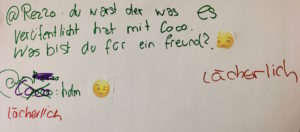 @Rezzo: du warst der was es
veröfentlicht hat mit Coco.
Was bist du für ein freund?.
lächerlich
: hdm
lächerlich